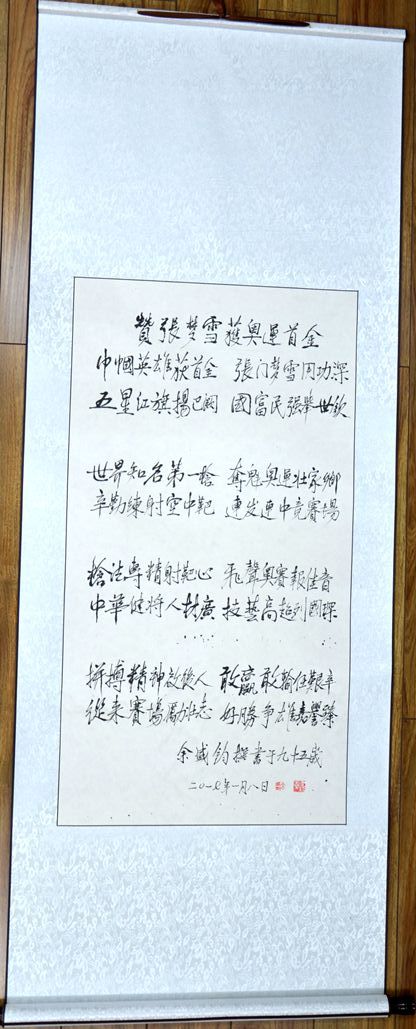 贊張梦雪獲奥運首金
巾幗英雄获首金 張门梦雪内功深
五星红旗揚巴 國富民强舉世欽
世界知名第一槍 奪魁奥運壮家鄉
辛勤練射空中靶 連发連中竞賽場
槍法專精射靶心 飛聲奥賽報佳音
中華健將人材廣 技藝高超列國琛
拼搏精神效後人 敢贏敢輸任艱辛
從來賽場勵壮志 好勝争雄嘉譽臻
余盛鈞撰書于九十五歲
二〇一七年一月八日